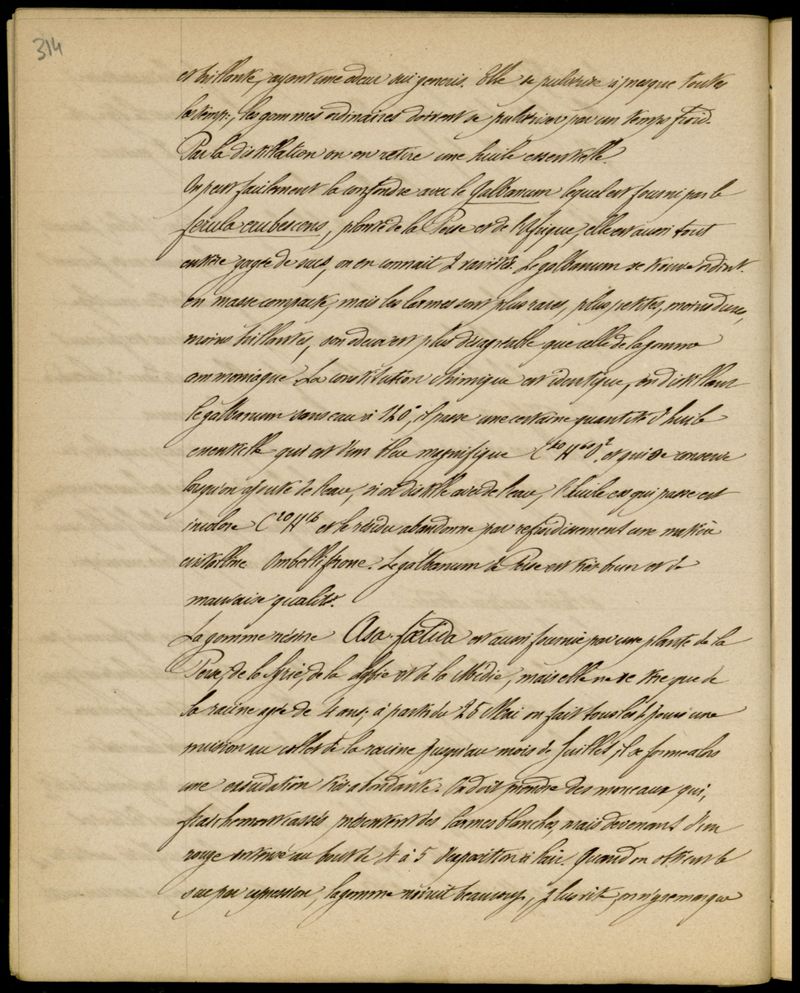 314
et brillante, ayant une odeur sui generis. Elle se pulvérise à presque toutes
les temp., les gommes ordinaires doivent se pulvériser par un temps froid.
Par la distillation on en retire une huile essentielle.
On peut facilement la confondre avec le Galbanum lequel est fourni par le
ferula erubescens, plante de la Perse et de l'Afrique, elle est aussi tout
entière gorgée de suc, on en connait 2 variétés. Le galbanum se trouve ordint.
en masse compacte, mais les larmes sont plus rares, plus petites, moins dures,
moins brillantes, son odeur est plus désagréable que celle de la gomme
ammoniaque. La constitution chimique est identique, en distillant
le galbanum sans eau à 120°, il passe une certaine quantité d'huile
essentielle qui est d'un bleu magnifique et qui se conserve
lorsqu'on ajoute de l'eau, si on distille avec de l'eau, l'huile ess qui passe est
incolore C20H16 et le résidu abandonne par refroidissement une matière
cristalline Ombelliférone. Le galbanum de Perse est très brun et de
mauvaise qualité.
La gomme résine Asa-foetida est aussi fournie par une plante de la
Perse, de la Syrie, de la et de la Médie, mais elle ne se tire que de
la racine agée de 4 ans; à partir du 25 Mai on fait tous les jours une
incision au collet de la racine jusqu'au mois de Juillet, il se forme alors
une exsudation très abondante. On doit prendre des morceaux qui,
fraichement cassés présentent des larmes blanches, mais devenant d'un
rouge intense au bout de 4 à 5 d'exposition à l'air. Quand on obtient le
suc par expression, la gomme noircit beaucoup plus vite, on n'y remarque